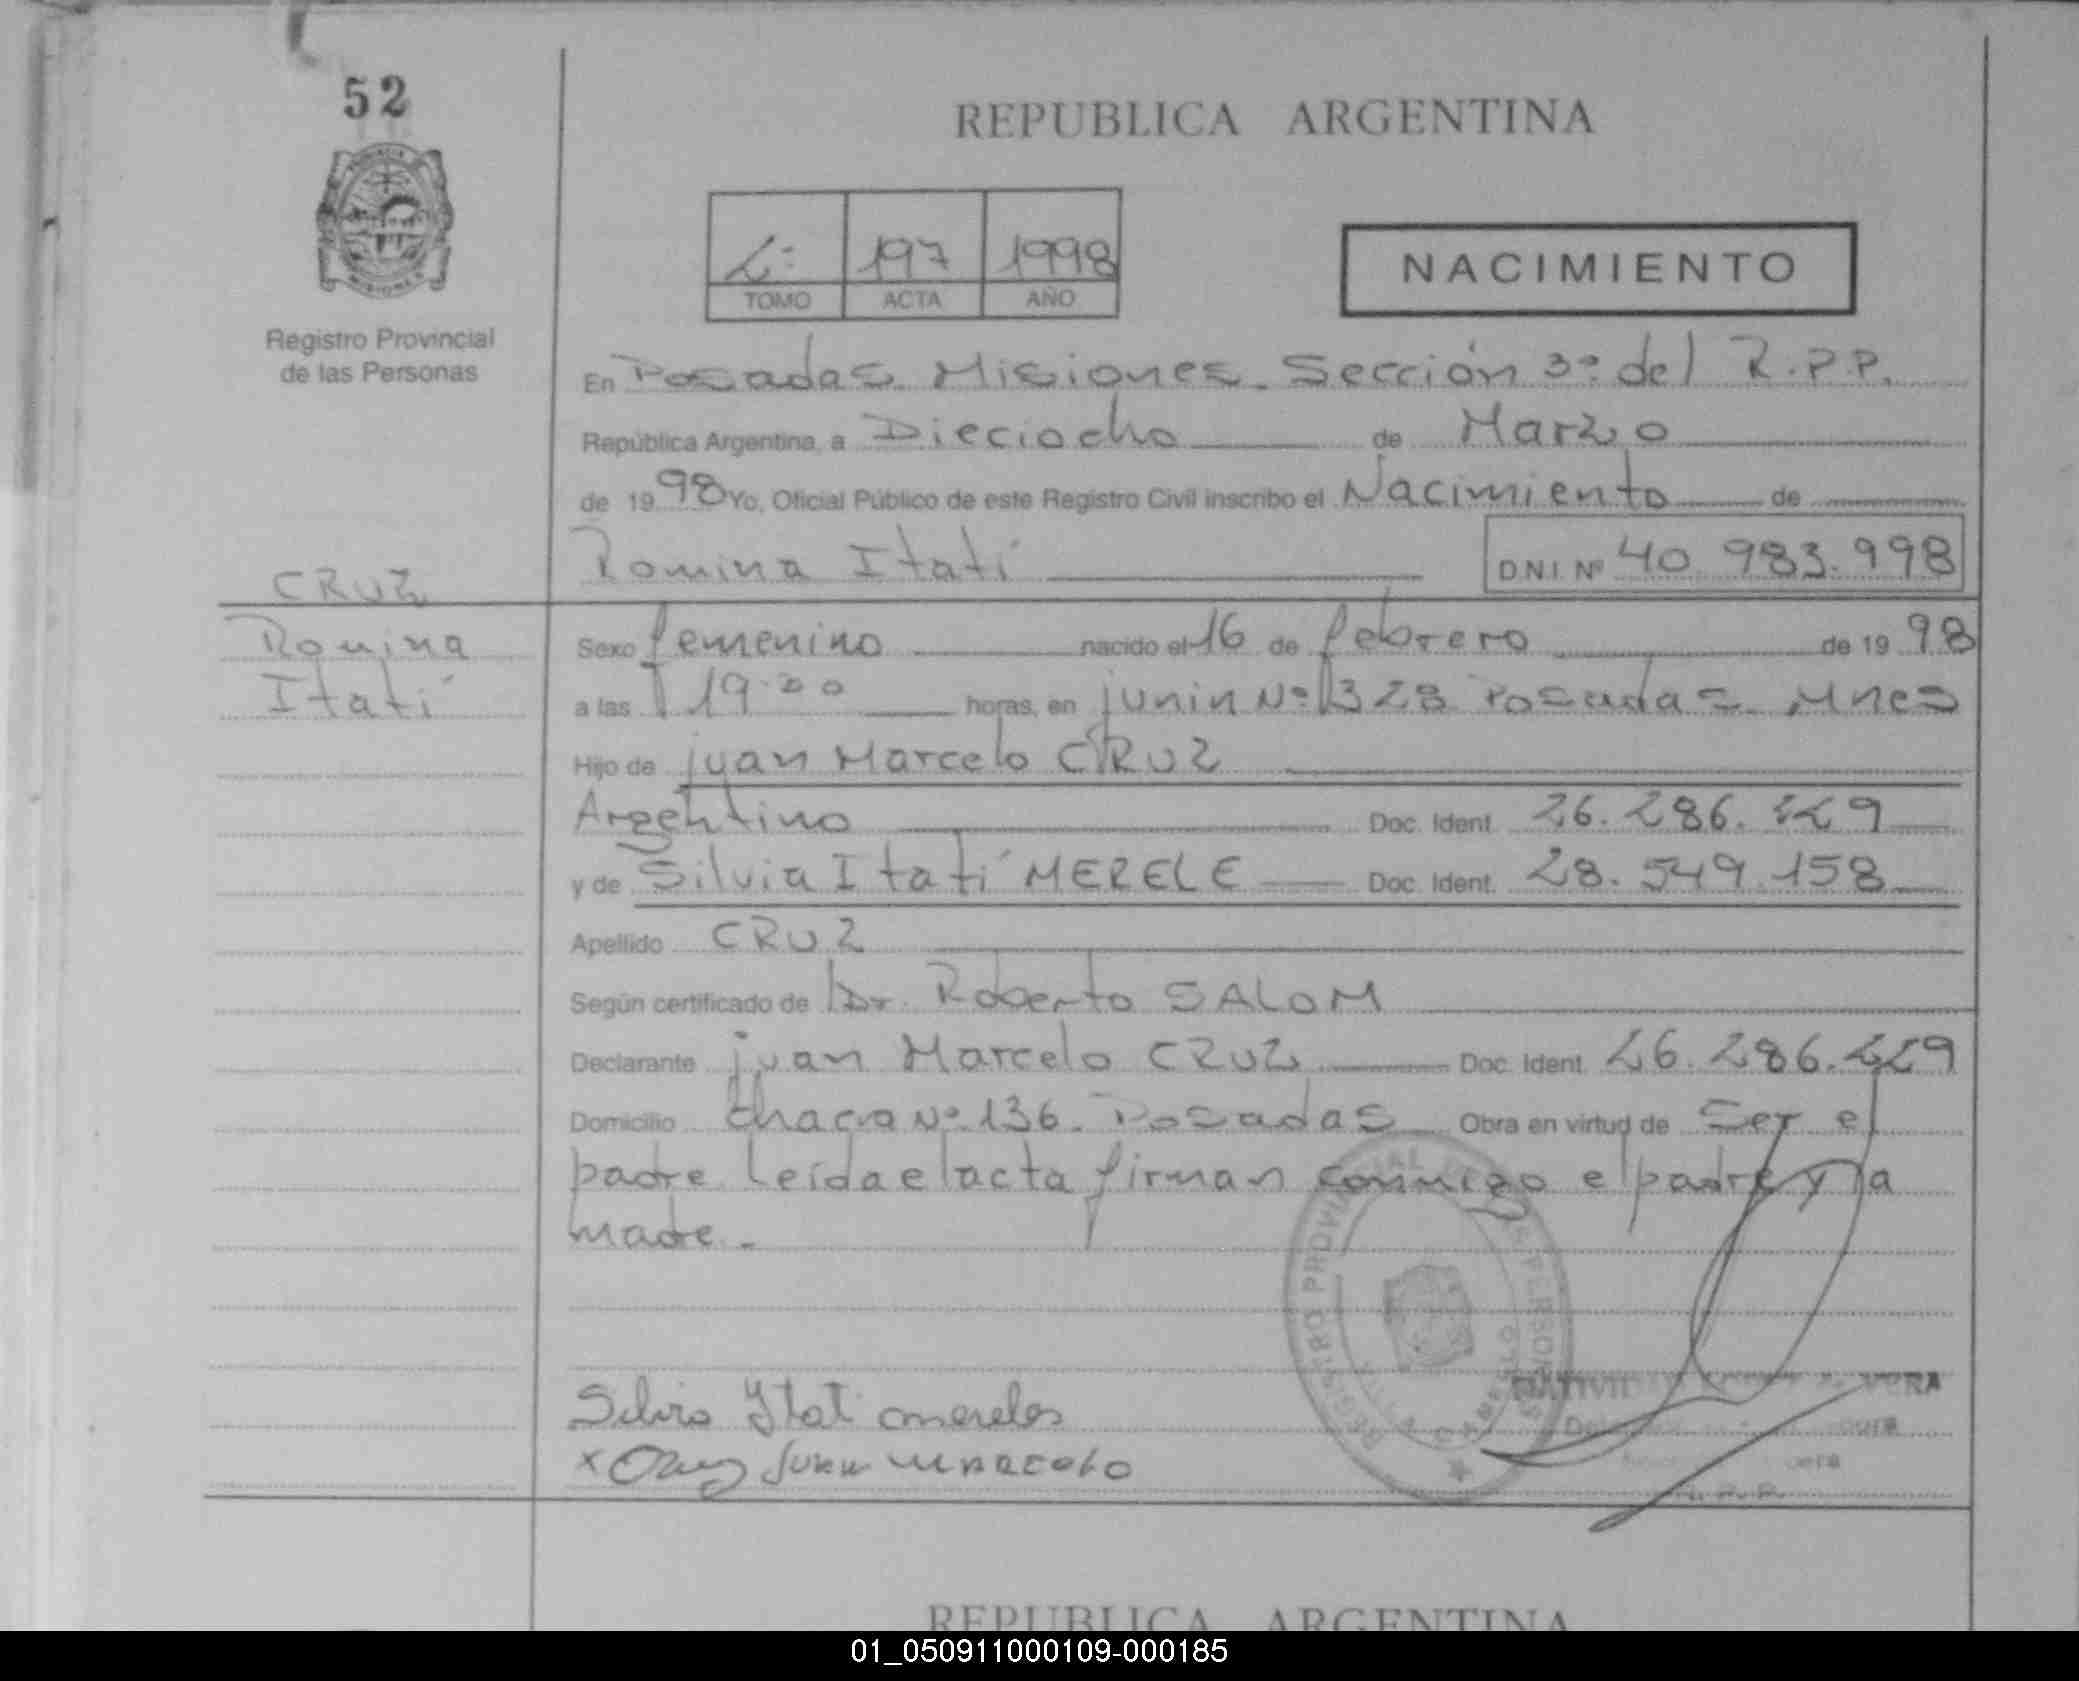 52
REPUBLICA ARGENTINA
197 1998
TOMO ACTA AÑO
NACIMIENTO
Registro Provincial
de las Personas
En Posadas Misiones. Sección 3º del R.P.P.
República Argentina, a Dieciocho de Marzo
de 1998 Yo, Oficial Público de este Registro Civil inscribo el Nacimiento de
Romina Itatí D.N.I. Nº 40.983.998
CRUZ
Romina
Itatí
Sexo femenino nacido el 16 de febrero de 1998
a las 19:00 horas, en junin Nº 328 Posadas. Mnes
Hijo de juan Marcelo CRUZ
Argentino Doc. Ident. 26.286.229
y de Silvia Itatí MERELE Doc. Ident. 28.549.158
Apellido CRUZ
Según certificado de Dr. Roberto SALOM
Declarante juan Marcelo CRUZ Doc. Ident. 26.286.229
Domicilio Chacra Nº 136. Posadas Obra en virtud de Ser el
padre leída el acta firman conmigo el padre y la
madre.-
REGISTRO PROVINCIAL DE LAS PERSONAS
VERA
Silvia Itati mereles
x Cruz Juan Marcelo
REPUBLICA ARGENTINA
01_050911000109-000185